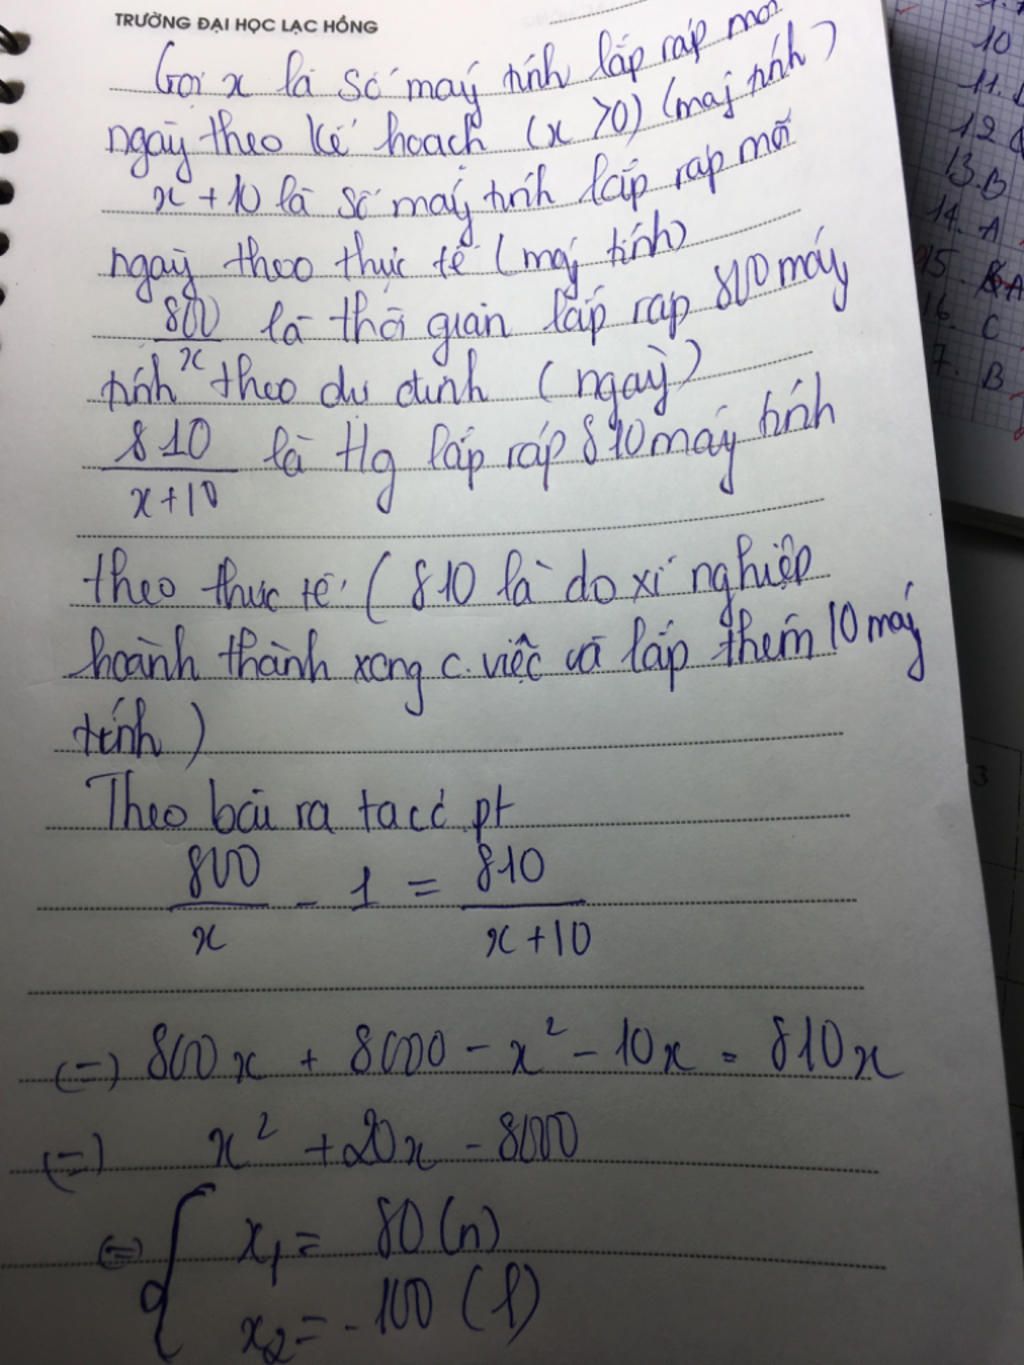 TRƯỜNG ĐẠI HỌC LẠC HỒNG
Gọi x là số máy tính lắp ráp mỗi
ngày theo kế hoạch (x >0) (máy tính)
x + 10 là số máy tính lắp ráp mỗi
ngày theo thực tế (máy tính)
800/x là thời gian lắp ráp 800 máy
tính theo dự định (ngày)
810/x+10 là tg lắp ráp 810 máy tính
theo thực tế (810 là do xí nghiệp
hoành thành xong c.việc và lắp thêm 10 máy
tính)
Theo bài ra ta có pt
800/x - 1 = 810/x+10
(=) 800x + 8000 - x² - 10x = 810x
(=) x² + 20x - 8000
(=) x₁ = 80 (n)
x₂ = -100 (l)
10
11.
12
13. B
14. A
15. A
16. C
7. B
3